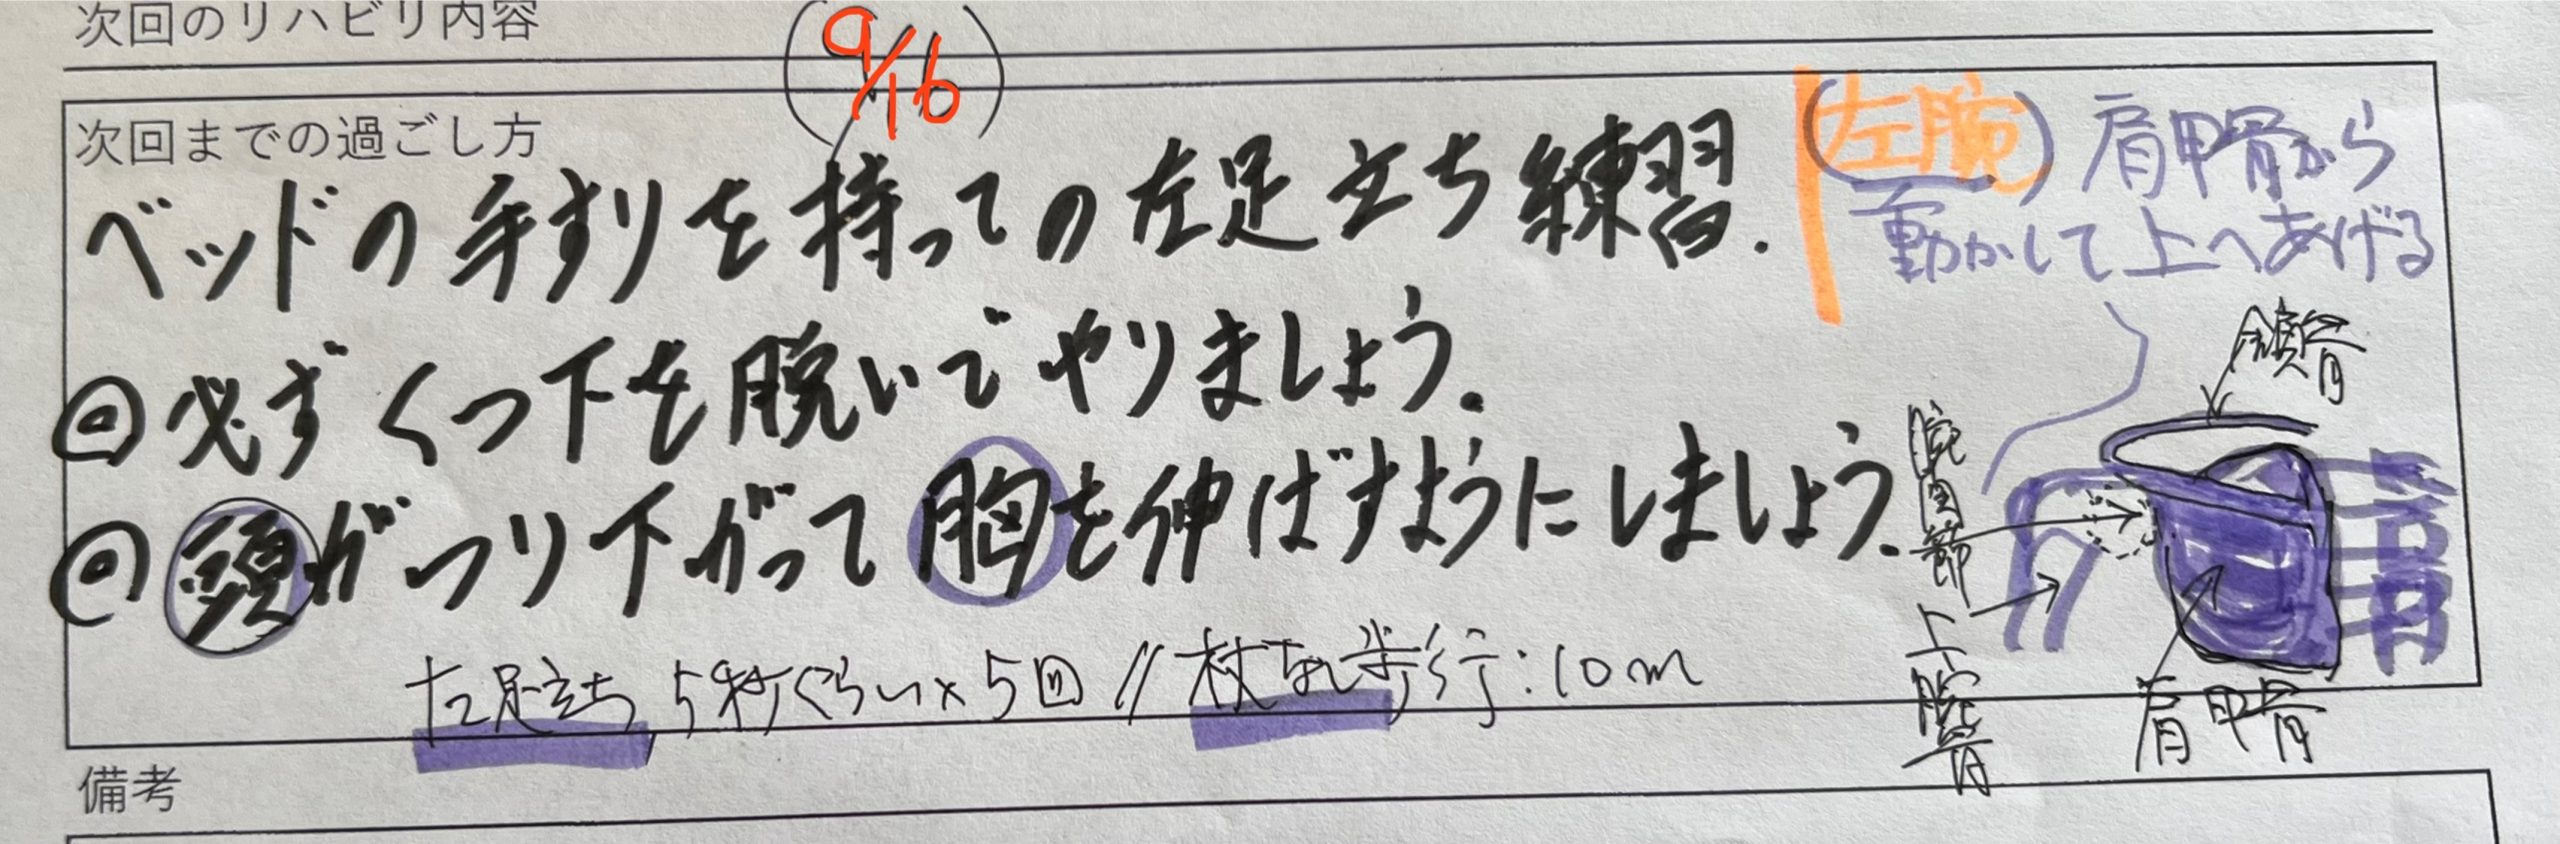 次回のリハビリ内容
(9/16)
次回までの過ごし方
ベッドの手すりを持っての左足立ち練習.
◎必ずくつ下を脱いでやりましょう.
◎頭がつり下がって胸を伸ばすようにしましょう.
左足立ち 5秒ぐらい×5回 // 杖なし歩行:10m
(左腕)肩甲骨から
動かして上へあげる
鎖骨
腕関節
上腕骨
肩甲骨
備考